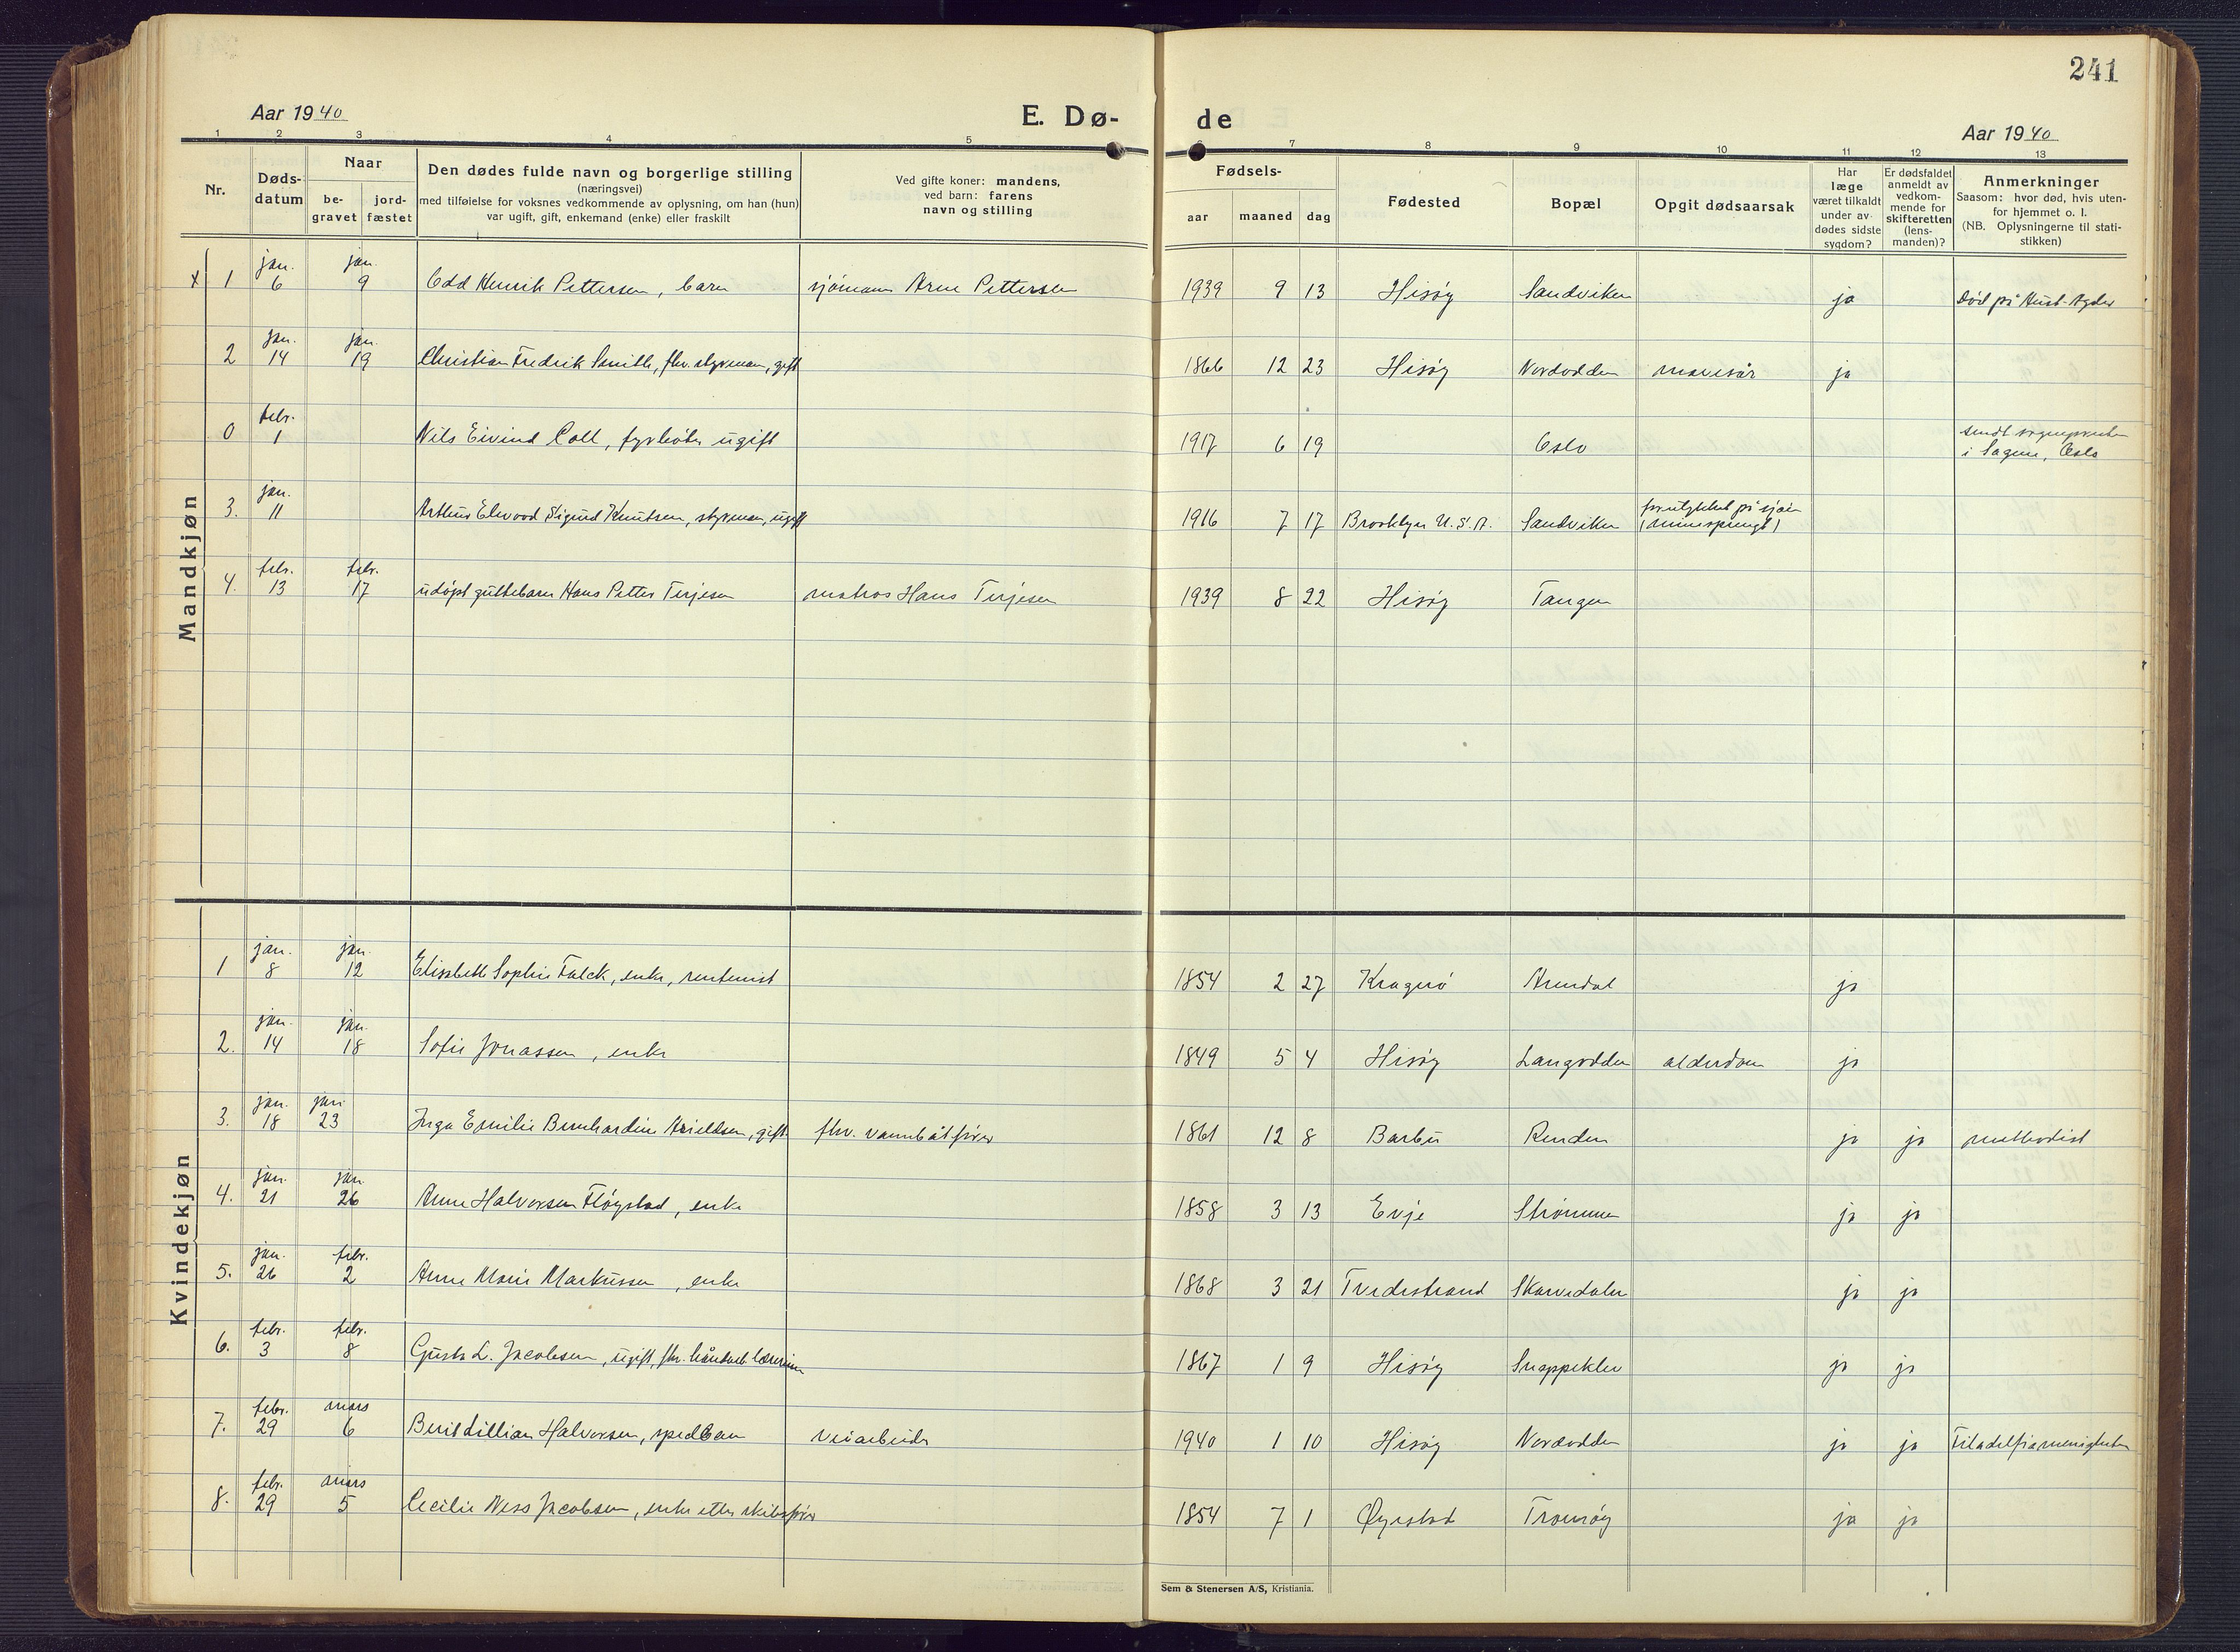 241
Aar 1940
E. Dø-
de
Aar 1940
1 2 3 4 5 6 7 8 9 10 11 12 13
Nr.
Døds-
datum
Naar
be-
gravet
jord-
fæstet
Den dødes fulde navn og borgerlige stilling
(næringsvei)
med tilføielse for voksnes vedkommende av oplysning, om han (hun)
var ugift, gift, enkemand (enke) eller fraskilt
Ved gifte koner: mandens,
ved barn: farens
navn og stilling
Fødsels-
aar maaned dag
Fødested
Bopæl
Opgit dødsaarsak
Har
læge
været tilkaldt
under av-
dødes sidste
sygdom?
Er dødsfaldet
anmeldt av
vedkom-
mende for
skifteretten
(lens-
manden)?
Anmerkninger
Saasom: hvor død, hvis uten-
for hjemmet o. l.
(NB. Oplysningerne til stati-
stikken)
Mandkjøn
jan. jan.
x 1 6 9 Odd Henrik Pettersen, barn sjømann Arne Pettersen 1939 9 13 Hisøy Sandviken ja Død på Aust-Agder
jan. jan.
2 14 19 Christian Fredrik Smith, fhv. styrmann, gift 1866 12 23 Hisøy Nordodden mavesår ja
febr.
0 1 Nils Eivind Coll, fyrbøter ugift 1917 6 19 Oslo sendt sognepresten
i Sagene, Oslo
jan.
3. 11 Arthur Elwood Sigurd Knutsen, styrmann, ugift 1916 7 17 Brooklyn U.S.A. Sandviken forulykket på sjøen
(minesprengt)
febr. febr.
4. 13 17 udøpt guttebarn Hans Petter Terjesen matros Hans Terjesen 1939 8 22 Hisøy Tangen
Kvindekjøn
jan. jan.
1 8 12 Elisabeth Sophie Falck, enke, rentenist 1854 2 27 Kragerø Arendal ja
jan. jan.
2. 14 18 Sofie Jonassen, enke 1849 5 4 Hisøy Langodden alderdom ja
jan. jan.
3. 18 23 Inga Emilie Bernhardine Arieldsen, gift fhv. vannbåtfører 1861 12 8 Barbu Renden ja ja methodist
jan. jan.
4. 21 26 Anne Halvorsen Fløystad, enke 1858 3 13 Evje Strømmen ja ja
jan. febr.
5. 26 2 Anne Marie Markussen, enke 1868 3 21 Tvedestrand Skarvedalen ja ja
febr. febr.
6. 3 8 Gusta L. Jacobsen, ugift, fhv. håndarb. lærerinne 1867 1 9 Hisøy Snappeklev ja ja
febr. mars
7. 29 6 Berit Lillian Halvorsen, spedbarn veiarbeider 1940 1 10 Hisøy Nordodden ja ja Filadelfiamenigheten
febr. mars
8. 29 5 Cecilie Ness Jacobsen, enke etter skibsfører 1854 7 1 Øyestad Tromøy ja ja
Sem & Stenersen A/S, Kristiania.